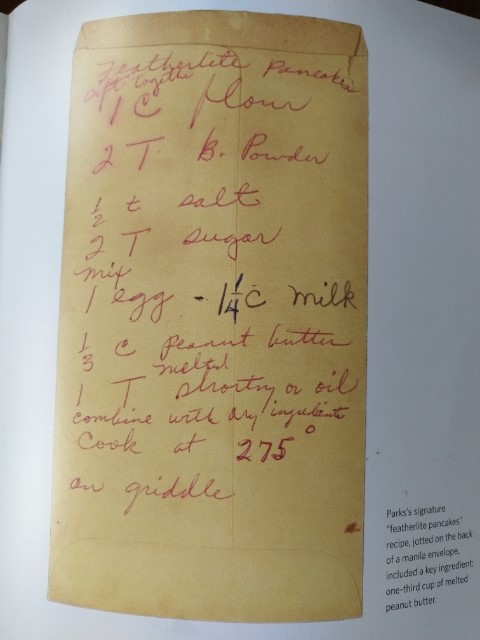 Featherlite Pancakes
sift together
1 C flour
2 T B. Powder
1/2 t salt
2 T sugar
mix
1 egg - 1 1/4 C milk
1/3 C peanut butter
melted
1 T shortng or oil
combine with dry ingredients
Cook at 275°
on griddle
Parks's signature
"featherlite pancakes"
recipe, jotted on the back
of a manila envelope,
included a key ingredient:
one-third cup of melted
peanut butter.